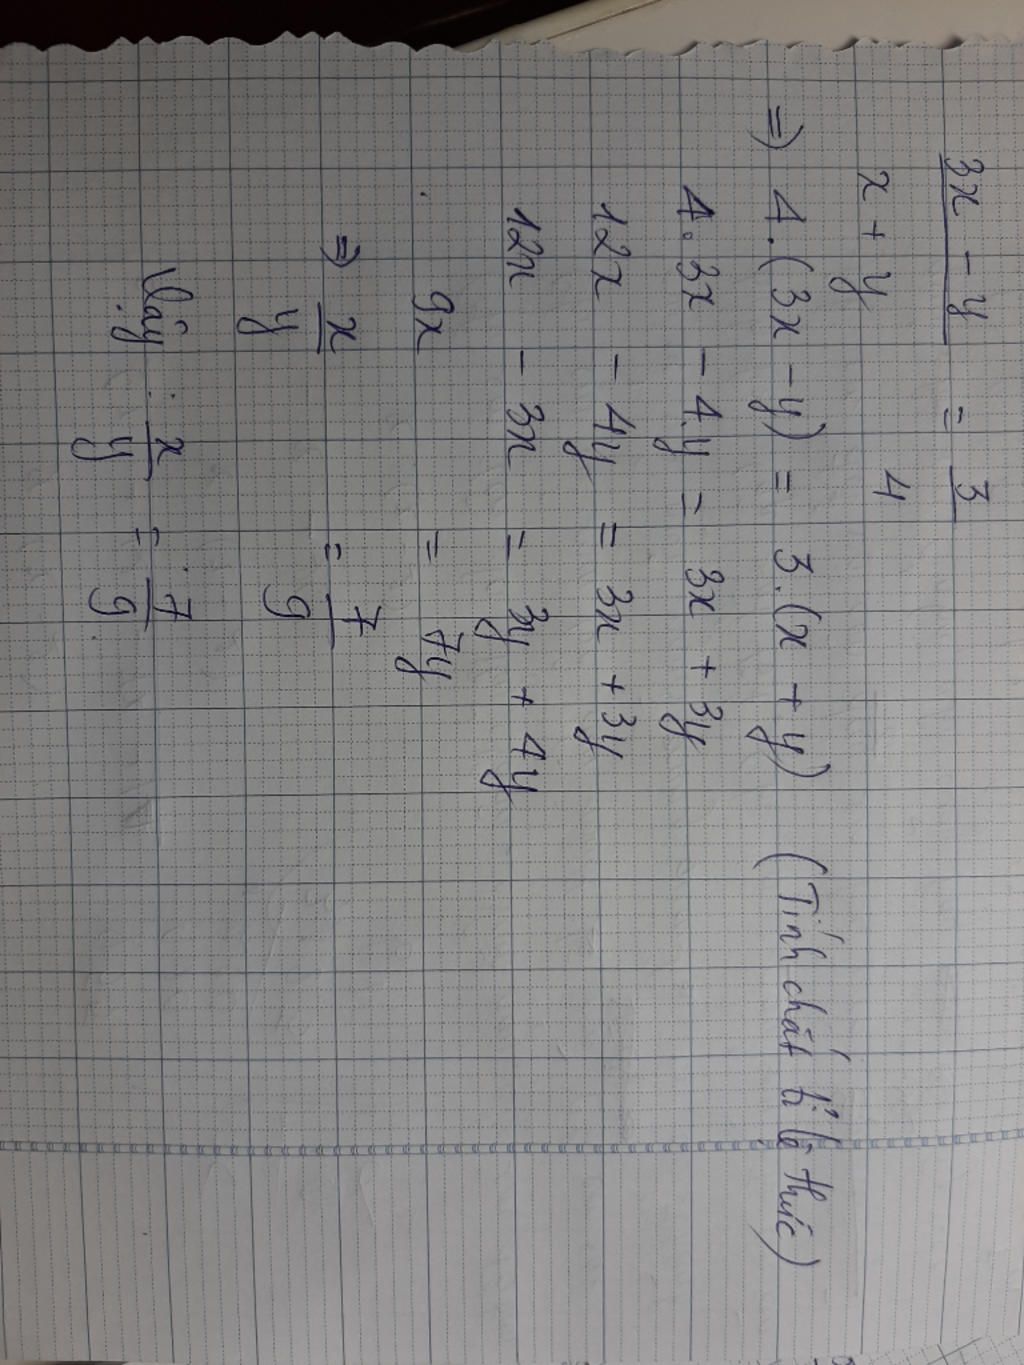 3x - y / x + y = 3 / 4
=) 4.(3x - y) = 3.(x + y) (Tính chất tỉ lệ thức)
4.3x - 4.y = 3x + 3y
12x - 4y = 3x + 3y
12x - 3x = 3y + 4y
9x = 7y
=) x / y = 7 / 9
Vậy : x / y = 7 / 9